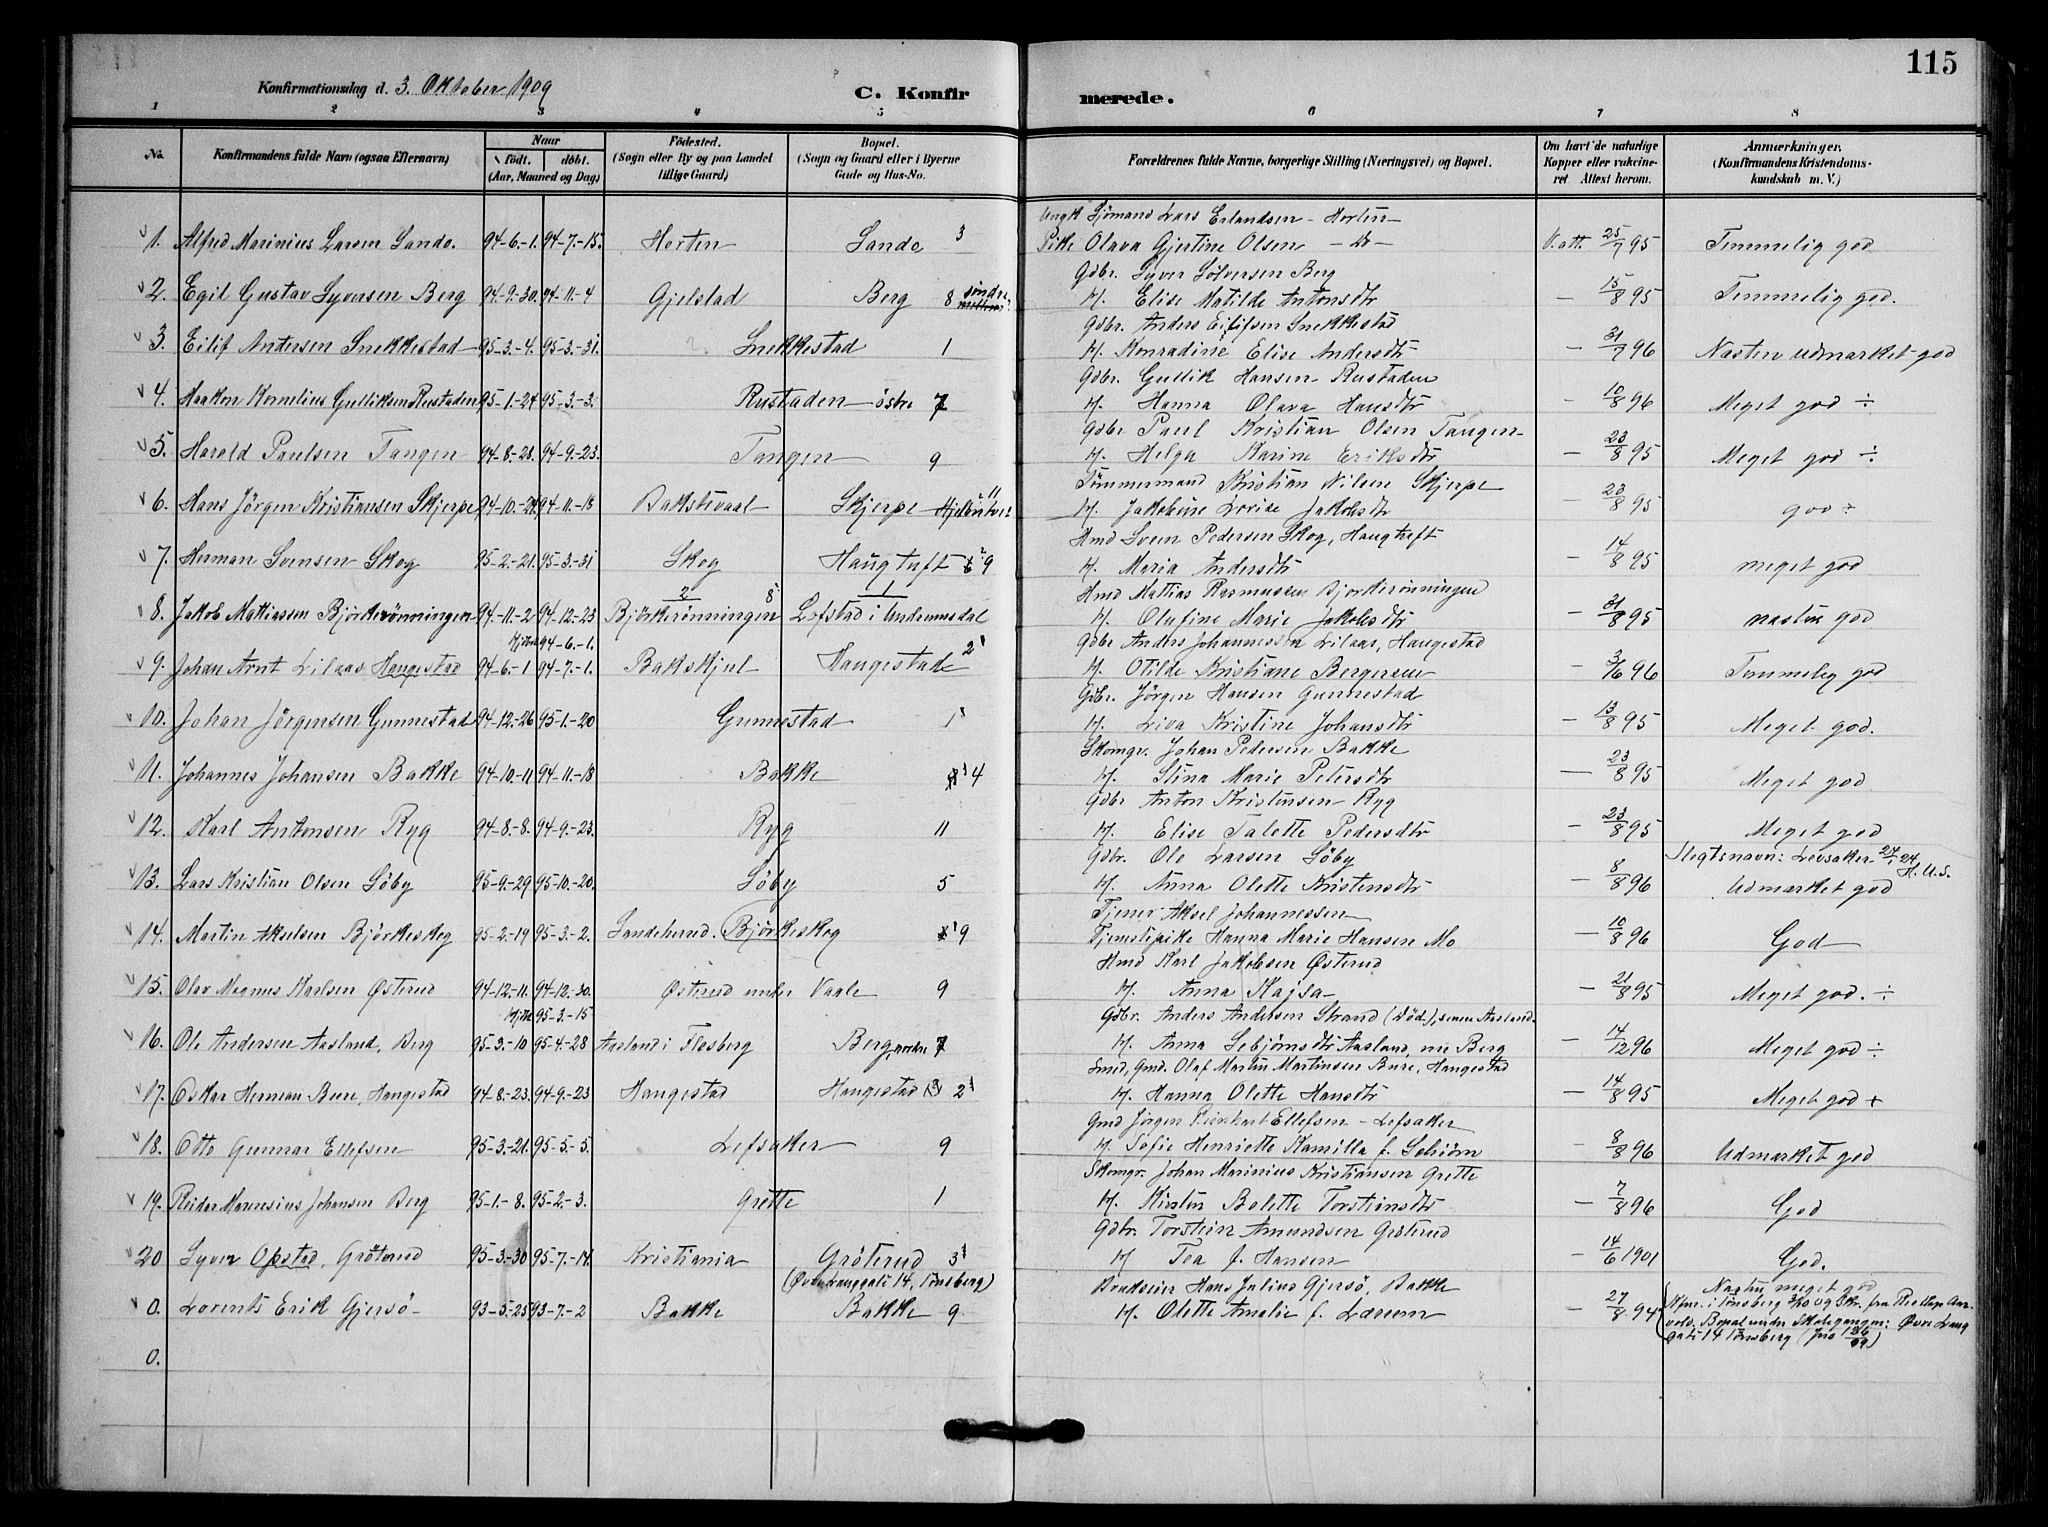 115
Konfirmationsdag d. 3. Oktober 1909
C. Konfir merede.
1 2 3 4 5 6 7 8
No. Konfirmandens fulde Navn (ogsaa Efternavn) Naar født. døbt. (Aar, Maaned og Dag) Födested. (Sogn eller By og paa Landet tillige Gaard) Bopæl. (Sogn og Gaard eller i Byerne Gade og Hus-No. Forældrenes fulde Navne, borgerlige Stilling (Næringsvei) og Bopæl. Om havt de naturlige Kopper eller vakcineret. Attest herom. Anmærkninger. (Konfirmandens Kristendomskundskab m. V.)
Ungk. Sjömand Lars Erlandsen - Horten -
1. Alfred Marinius Larsen Sande. 94-6-1. 94-7-15. Horten Sande 3 Pike Olava Gjertine Olsen - do - V. att. 25/7 95 Temmelig god
Gdbr. Syver Sölversen Berg
2. Egil Gustav Syversen Berg 94-9-30. 94-11-4 Gjelstad Berg 8 söndre H. Elise Matilde Antonsdtr - 15/8 95 Temmelig god.
Gdbr. Anders Eilifsen Snekkestad
3. Eilif Andersen Snekkestad 95-3-4. 95-3-31. Snekkestad 1 H. Konradine Elise Andersdtr - 31/7 96 Næsten udmærket god
Gdbr. Gullik Hansen Rustaden
4. Haakon Kornelius Gulliksen Rustaden 95-1-24 95-3-3. Rustaden östre 7 H. Hanna Olava Hansdtr - 10/8 96 Meget god ÷
Gdbr Paul Kristian Olsen Tangen
5. Harald Paulsen Tangen 94-8-28. 94-9-23. Tangen 9 H. Helga Karine Eriksdtr - 23/8 95 Meget god ÷
Tömmermand Kristian Nilsen Skjerpe
6. Hans Jörgen Kristiansen Skjerpe 94-10-24 94-11-18 Bakstevaal Skjerpe 11 H. Jakobine Lovise Jakobsdtr - 23/8 95 god ÷
Hmd Sven Pedersen Skog, Haugtuft
7. Herman Svensen Skog 95-2-21. 95-3-31 Skog Haugtuft 9 H. Maria Andersdtr - 14/8 95 meget god
Hmd Mattias Rasmussen Bjørkerønningen
8. Jakob Mattiassen Bjørkerønningen 94-11-2 94-12-23 Bjørkerønningen Lofstad i Undrumsdal H. Olufine Marie Jakobsdtr - 31/8 95 næsten god
Hjdbt. 94-6-1. Gdbr Anders Johannessen Lilaas, Haugestad
9. Johan Arnt Lilaas Haugestad 94-6-1 94-7-1. Bakskjul Haugestad 2 H. Otilde Kristiane Bergersen - 3/6 96 Temmelig god
Gdbr. Jörgen Hansen Gunnestad
10. Johan Jörgensen Gunnestad 94-12-26 95-1-20 Gunnestad 1 H. Liva Kristine Johansdtr - 13/8 95 Meget god.
Skomgr. Johan Pedersen Bakke
11. Johannes Johansen Bakke 94-10-11 94-11-18 Bakke 4 H. Stina Marie Petersdtr - 23/8 95 Meget god
Gdbr Anton Kristensen Ryg
12. Karl Antonsen Ryg 94-8-8. 94-9-23. Ryg 11 H. Elise Talette Pedersdtr - 23/8 95 Meget god
Gdbr. Ole Larsen Söby Slegtsnavn: Levsaker 24/7 24 H.U.S.
13. Lars Kristian Olsen Söby 95-9-29 95-10-20. Söby 5 H. Anna Olette Kristensdtr - 8/8 96 Udmærket god
Tjener Aksel Johannessen
14. Martin Akselsen Björkeskog 95-2-19 95-3-2. Sandeherred. Björkeskog 9 Tjenestepike Hanna Marie Hansen Mo - 10/8 96 God
Hmd Karl Jakobsen Østerud
15. Olav Magnus Karlsen Østerud 94-12-11. 94-12-30. Østerud under Vaale 9 H. Anna Kajsa - 21/8 95 Meget god. ÷
Hjdbt 95-3-15 Gdbr. Anders Andersen Strand (död), senere Aasland
16. Ole Andersen Aasland, Berg 95-3-10 95-4-28 Aasland i Flesberg Berg nordre 7 H. Anna Sebjörnsdtr Aasland, nu Berg - 14/12 96 Meget god ÷
Smed, Gmd. Olaf Martin Martinsen Bure, Haugestad
17. Oskar Herman Bure, Haugestad 94-8-23. 94-9-23 Haugestad Haugestad 2 H. Hanna Olette Hansdtr - 14/8 95 Meget god +
Gmd Jörgen Reinhart Ellefsen - Lefsaker
18. Otto Gunnar Ellefsen 95-3-21. 95-5-5. Lefsaker 9 H. Sofie Henriette Kamilla f. Schiörn - 8/8 96 Udmærket god
Skomgr. Johan Marinius Kristiansen Grette
19. Reidar Mauresius Johansen Berg 95-1-8. 95-2-3. Grette 1 H. Kirsten Bolette Torstensdtr - 7/8 96 God
Gdbr. Torstein Amundsen Grøterud
20 Syver Opstad, Grøterud 95-3-30 95-7-14. Kristiania Grøterud 3 H Tea f. Hansen - 14/6 1901 God.
(Øvre Langgate 14, Tönsberg) Brukseier Hans Julius Gjersø, Bakke Næsten meget god
0. Lorents Erik Gjersø 93-5-25 93-7-2 Bakke Bakke 9 H. Olette Amalie f. Lærum - 27/8 94 Kfm. i Tönsberg 3/10 09 Bopæl under Skolegangen: Øvre Lang
gate 14 Tönsberg
0.